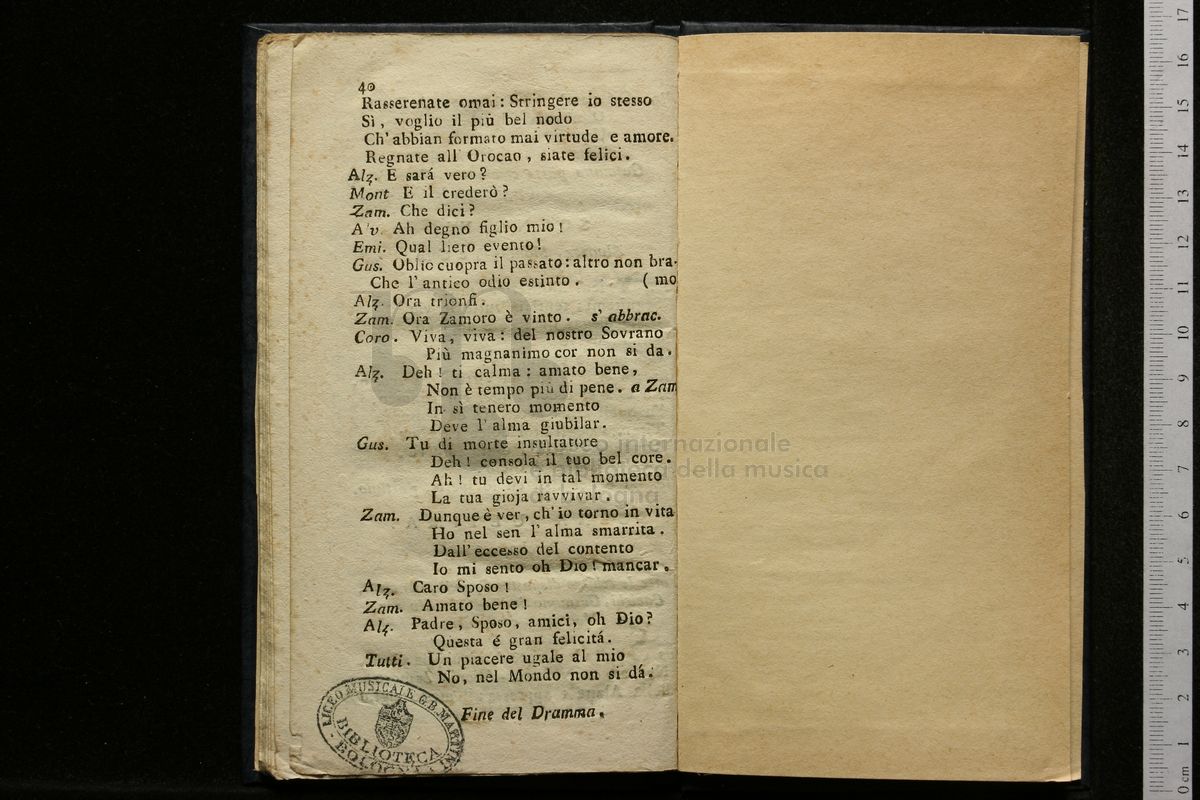 40
Rasserenate omai: Stringere io stesso
Sì, voglio il più bel nodo
Ch' abbian formato mai virtude e amore.
Regnate all' Orocao, siate felici.
Alz. E sará vero?
Mont E il crederò?
Zam. Che dici?
A v. Ah degno figlio mio!
Emi. Qual lieto evento!
Gus. Oblio cuopra il passato: altro non bra-
Che l' antico odio estinto. (mo
Alz. Ora trionfi.
Zam. Ora Zamoro è vinto. s' abbrac.
Coro. Viva, viva: del nostro Sovrano
Più magnanimo cor non si da.
Alz. Deh! ti calma: amato bene,
Non è tempo più di pene. a Zam
In sì tenero momento
Deve l' alma giubilar.
Gus. Tu di morte insultatore
Deh! consola il tuo bel core.
Ah! tu devi in tal momento
La tua gioja ravvivar.
Zam. Dunque è ver, ch' io torno in vita
Ho nel sen l' alma smarrita.
Dall' eccesso del contento
Io mi sento oh Dio! mancar.
Alz. Caro Sposo!
Zam. Amato bene!
Alz. Padre, Sposo, amici, oh Dio?
Questa é gran felicitá.
Tutti. Un piacere ugale al mio
No, nel Mondo non si dá.
Fine del Dramma.
LICEO MUSICALE G.B. MARTINI
BIBLIOTECA
BOLOGNA
internazionale
della musica
0 cm 1 2 3 4 5 6 7 8 9 10 11 12 13 14 15 16 17